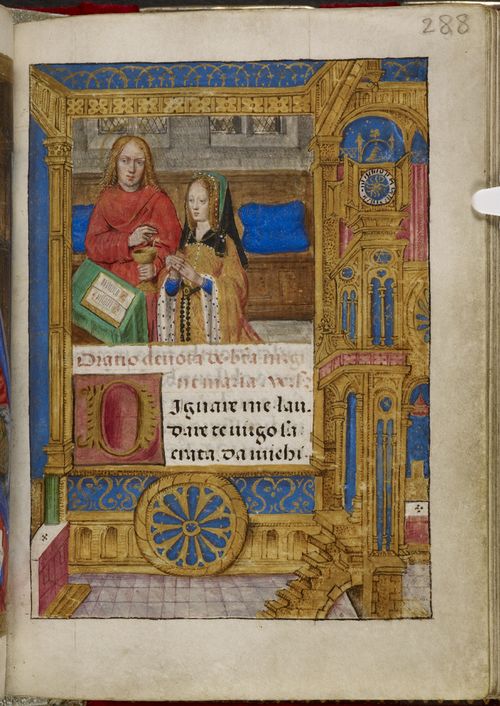 288
Oratio deuota de bt̄a uirgi
ne maria. Vers9
Dignare me lau
dare te uirgo sa
crata. Da michi